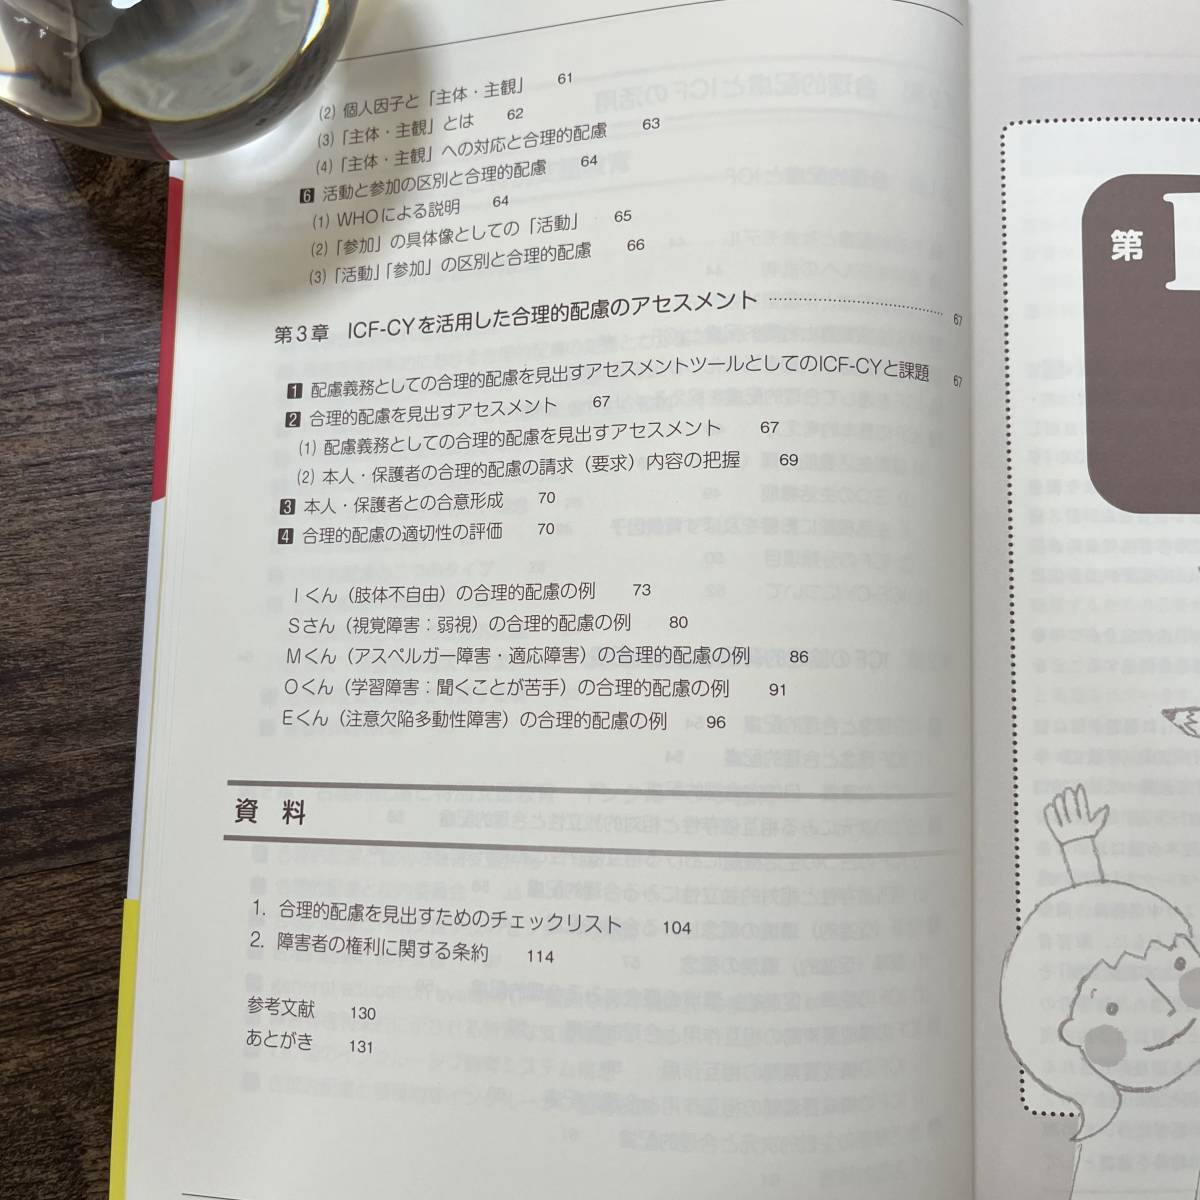 (2) 個人因子と「主体・主観」 61
(3)「主体・主観」とは 62
(4)「主体・主観」への対応と合理的配慮 63
6 活動と参加の区別と合理的配慮 64
(1) WHOによる説明 64
(2)「参加」の具体像としての「活動」 65
(3)「活動」「参加」の区別と合理的配慮 66
第3章 ICF-CYを活用した合理的配慮のアセスメント 67
1 配慮義務としての合理的配慮を見出すアセスメントツールとしてのICF-CYと課題 67
2 合理的配慮を見出すアセスメント 67
(1) 配慮義務としての合理的配慮を見出すアセスメント 67
(2) 本人・保護者の合理的配慮の請求（要求）内容の把握 69
3 本人・保護者との合意形成 70
4 合理的配慮の適切性の評価 70
Iくん（肢体不自由）の合理的配慮の例 73
Sさん（視覚障害：弱視）の合理的配慮の例 80
Mくん（アスペルガー障害・適応障害）の合理的配慮の例 86
Oくん（学習障害：聞くことが苦手）の合理的配慮の例 91
Eくん（注意欠陥多動性障害）の合理的配慮の例 96
資料
1. 合理的配慮を見出すためのチェックリスト 104
2. 障害者の権利に関する条約 114
参考文献 130
あとがき 131
第